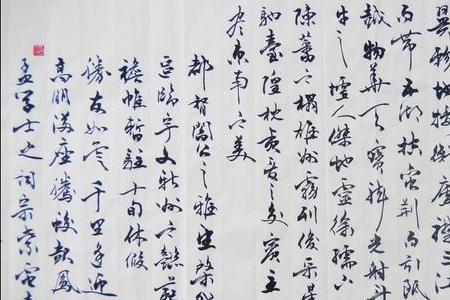 翼軫地接衡廬襟三江
而帶五湖控蠻荊而引甌
越物華天寶龍光射斗
牛之墟人傑地靈徐孺下
陳蕃之榻雄州霧列俊采星
馳臺隍枕夷夏之交賓主
盡東南之美
都督閻公之雅望棨戟
遙臨宇文新州之懿範
襜帷暫駐十旬休假
勝友如雲千里逢迎
高朋滿座騰蛟起鳳
孟學士之詞宗紫電